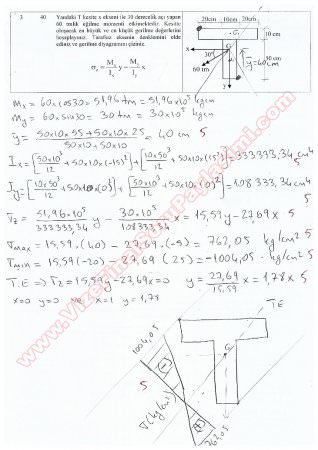 3 40 Yandaki T kesite x ekseni ile 30 derecelik açı yapan
60 tmlik eğilme momenti etkimektedir. Kesitte
oluşacak en büyük ve en küçük gerilme değerlerini
hesaplayınız. Tarafsız eksenin denklemini elde
ediniz ve gerilme diyagramını çiziniz.
σz = Mx/Ix y − My/Iy x
20cm 10cm 20cm
10 cm
G
x
30°
50 cm
60 tm
y
ȳ=40cm
Mx = 60x cos30 = 51,96 tm = 51,96x10⁵ kgcm
My = 60x sin30 = 30 tm = 30x10⁵ kgcm
ȳ = 50x10x55+50x10x25 / 50x10+50x10 = 40 cm 5
Ix = [50x10³/12 + 50x10x(-15)²] + [10x50³/12 + 50x10x(15)²] = 333333,34 cm⁴ 5
Iy = [10x50³/12 + 50x10x(0)²] + [50x10³/12 + 50x10x(0)²] = 108333,34 cm⁴ 5
σz = 51,96x10⁵/333333,34 y − 30x10⁵/108333,34 x = 15,59y − 27,69x 5
σmax = 15,59.(40) − 27,69.(-5) = 762,05 kg/cm² 5
σmin = 15,59(-20) − 27,69(25) = -1004,05 kg/cm² 5
T.E ⇒ σz = 15,59y − 27,69x = 0 y = 27,69/15,59 x = 1,78x 5
x=0 y=0 ve x=1 y=1,78
TE
1004,05
G
5
σ(kg/cm²)
762,05
www.VizeFinalOdemPaylasimi.com